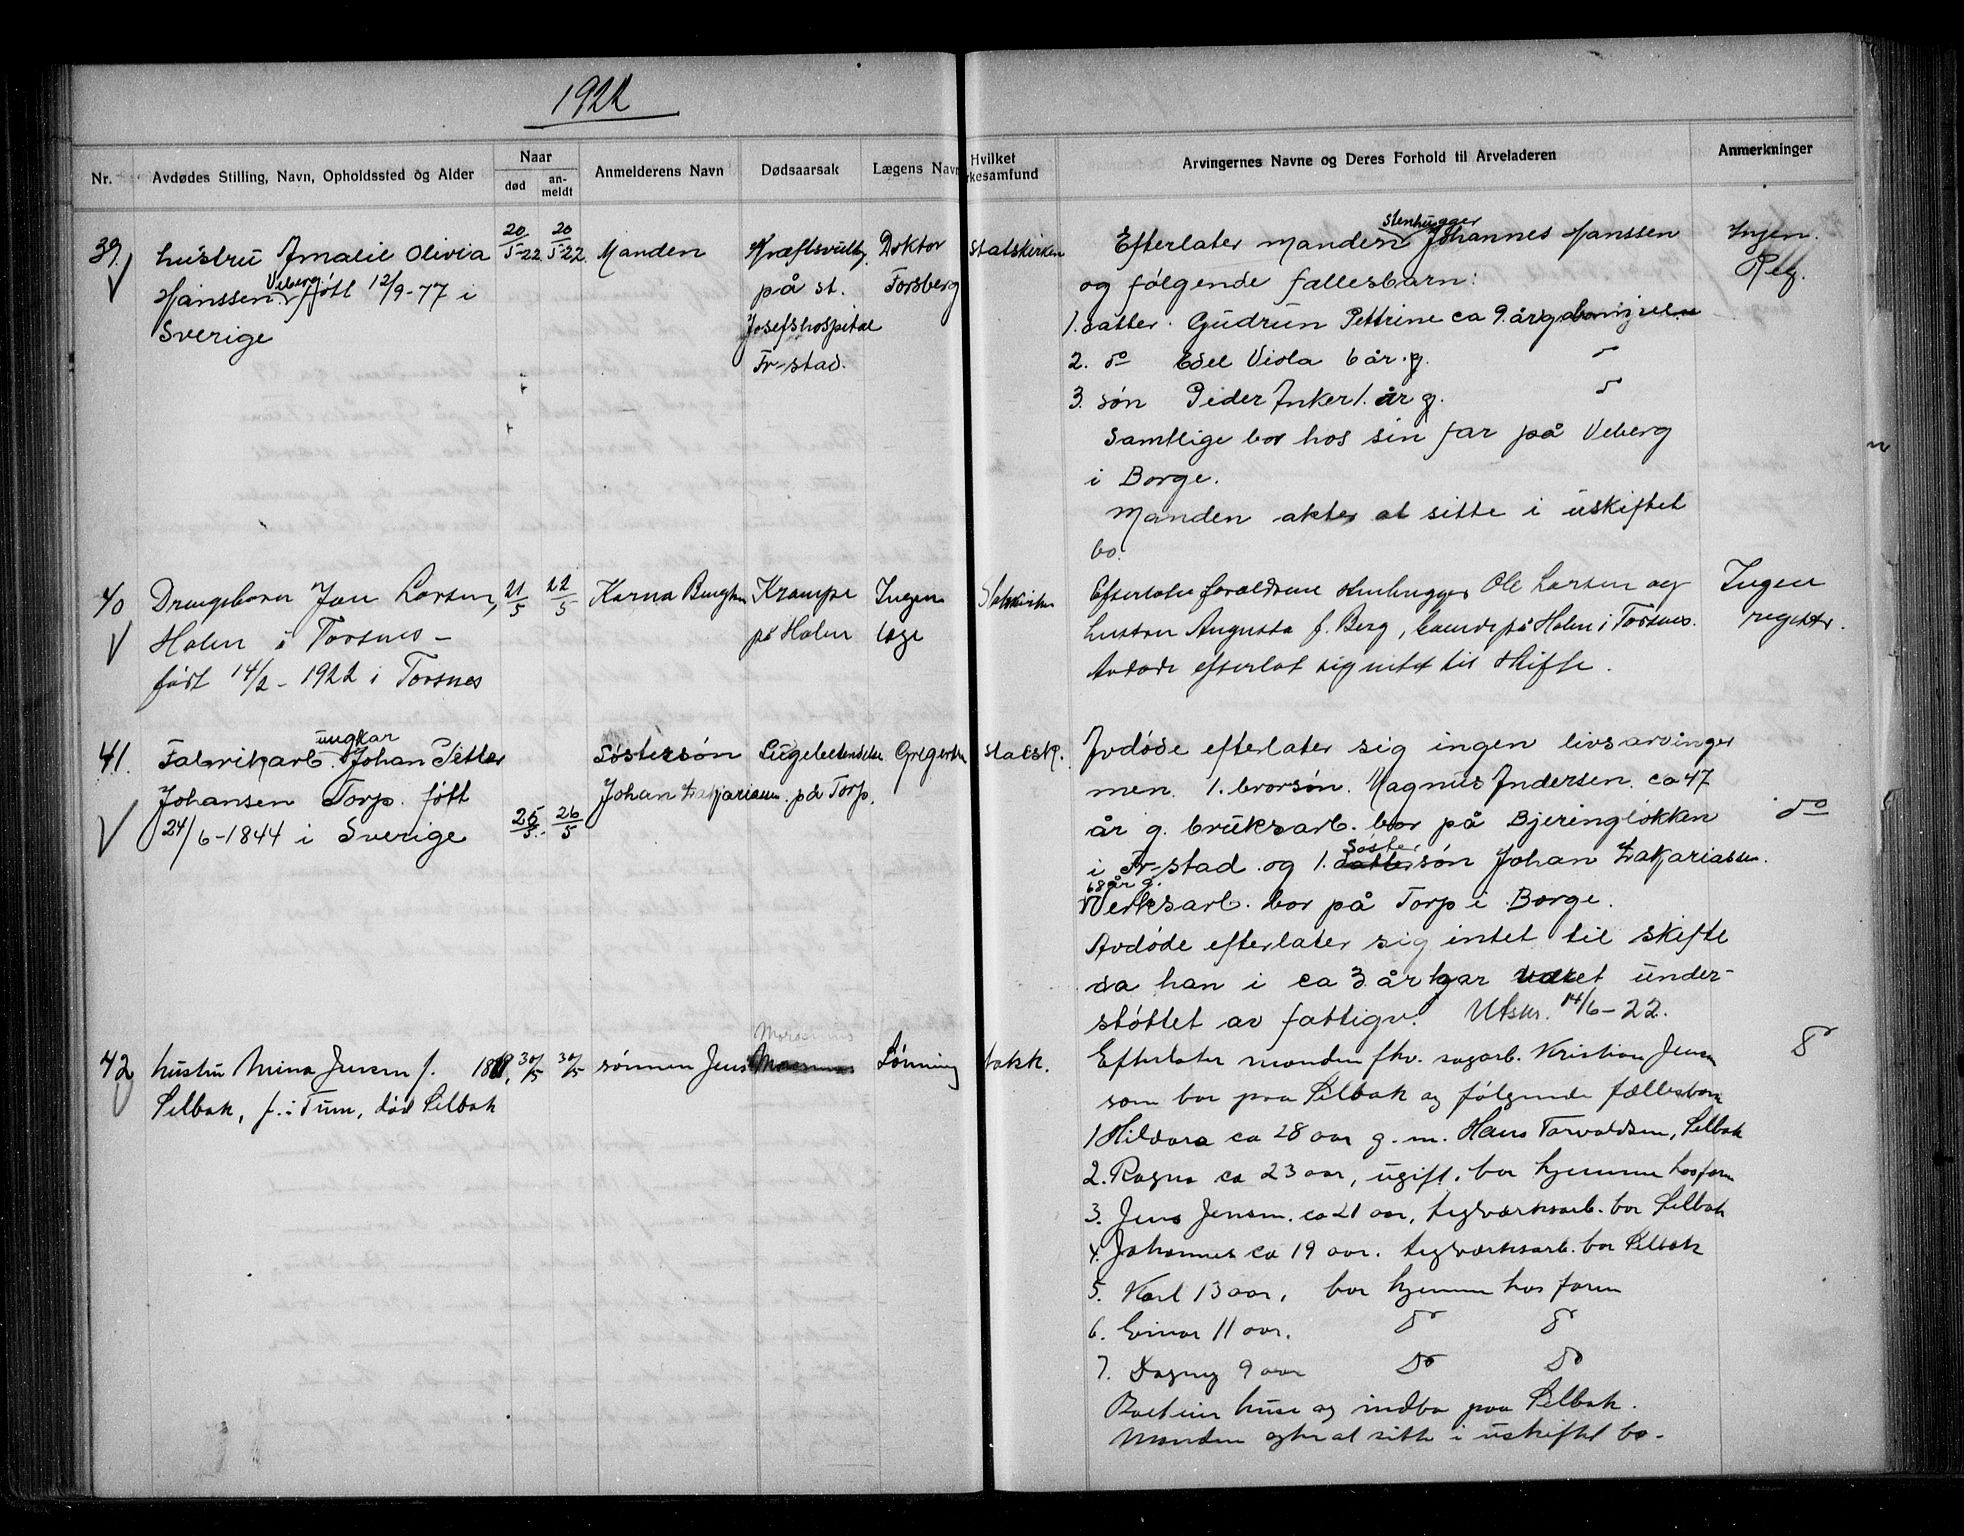 1922
Nr.
Avdødes Stilling, Navn, Opholdssted og Alder
Naar
død
an-
meldt
Anmelderens Navn
Dødsaarsak
Lægens Navn
Hvilket
rkesamfund
Arvingernes Navne og Deres Forhold til Arveladeren
Anmerkninger
39.
hustru Amalie Olivia
Hanssen Veberg født 12/9-77 i
Sverige
20/5-22
20/5-22.
Manden
Kræftsvulst
på st.
Josefshospital
Fr-stad.
Doktor
Forsberg
Statskirken
Efterlater manden stenhugger Johannes Hanssen
og følgende fællesbarn:
1. datter. Gudrun Pettrine ca 9. år g.
2. do Edel Viola 6 år. g.
3. søn Peder Anker 1. år g.
Samtlige bor hos sin far på Veberg
i Borge.
Manden akter at sitte i uskiftet
bo.
Ingen.
Reg.
40
Drengebarn Jan Larsen,
Holm i Torsnes -
født 14/2 - 1922 i Torsnes
21/5
22/5
Karna
Krampe
på Holm
Ingen
læge
Statskirken
Efterlater forældrene stenhugger Ole Larsen og
hustru Augusta f. Berg, boende på Holm i Torsnes.
Avdøde efterlot sig intet til skifte.
Ingen
register.
41.
Fabrikarb. ungkar Johan Petter
Johansen Torp. født
24/6-1844 i Sverige
25/5.
26/5
Søstersøn
Johan Zakjariassen
på Torp.
Gregersen
Statsk.
Avdøde efterlater sig ingen livsarvinger
men. 1. brorsøn. Magnus Andersen. ca 47
år g. bruksarb. bor på Bjeringløkken
i Fr-stad. og 1. søster søn Johan Zakjariassen.
68 år g.
Verksarb. bor på Torp i Borge.
Avdøde efterlater sig intet til skifte
da han i ca 3 år har været under-
støttet av fattigv. Utskr. 14/6-22.
do
42
hustru Mina Jensen f.
Selbak, f. i Tune, død Selbak
30/5
30/5
sønnen Jens
Marasmus
Lønning
statsk.
Efterlater manden fhv. sagarb. Kristian Jensen
som bor paa Selbak og følgende fællesbarn
1 Hildora ca 28 aar g. m. Hans Torvaldsen, Selbak
2. Ragna ca 23 aar, ugift. bor hjemme hos faren
3. Jens Jensen. ca 21 aar, teglværksarb. bor Selbak
4. Johannes ca 19 aar. teglværksarb. bor Selbak
5. Karl 13 aar, bor hjemme hos faren
6. Einar 11 aar. do do
7. Dagny 9 aar do do
Boet eier huse og indbo paa Selbak.
Manden agter at sitte i uskiftet bo.
do